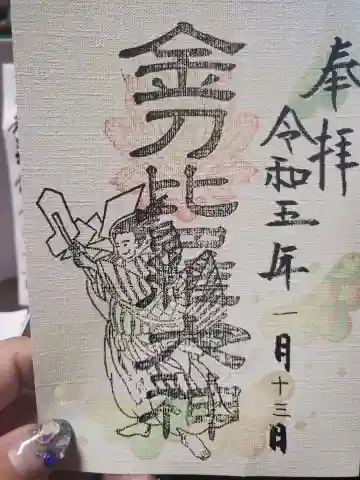 奉拝
令和五年
一月十三日
金刀比羅大神